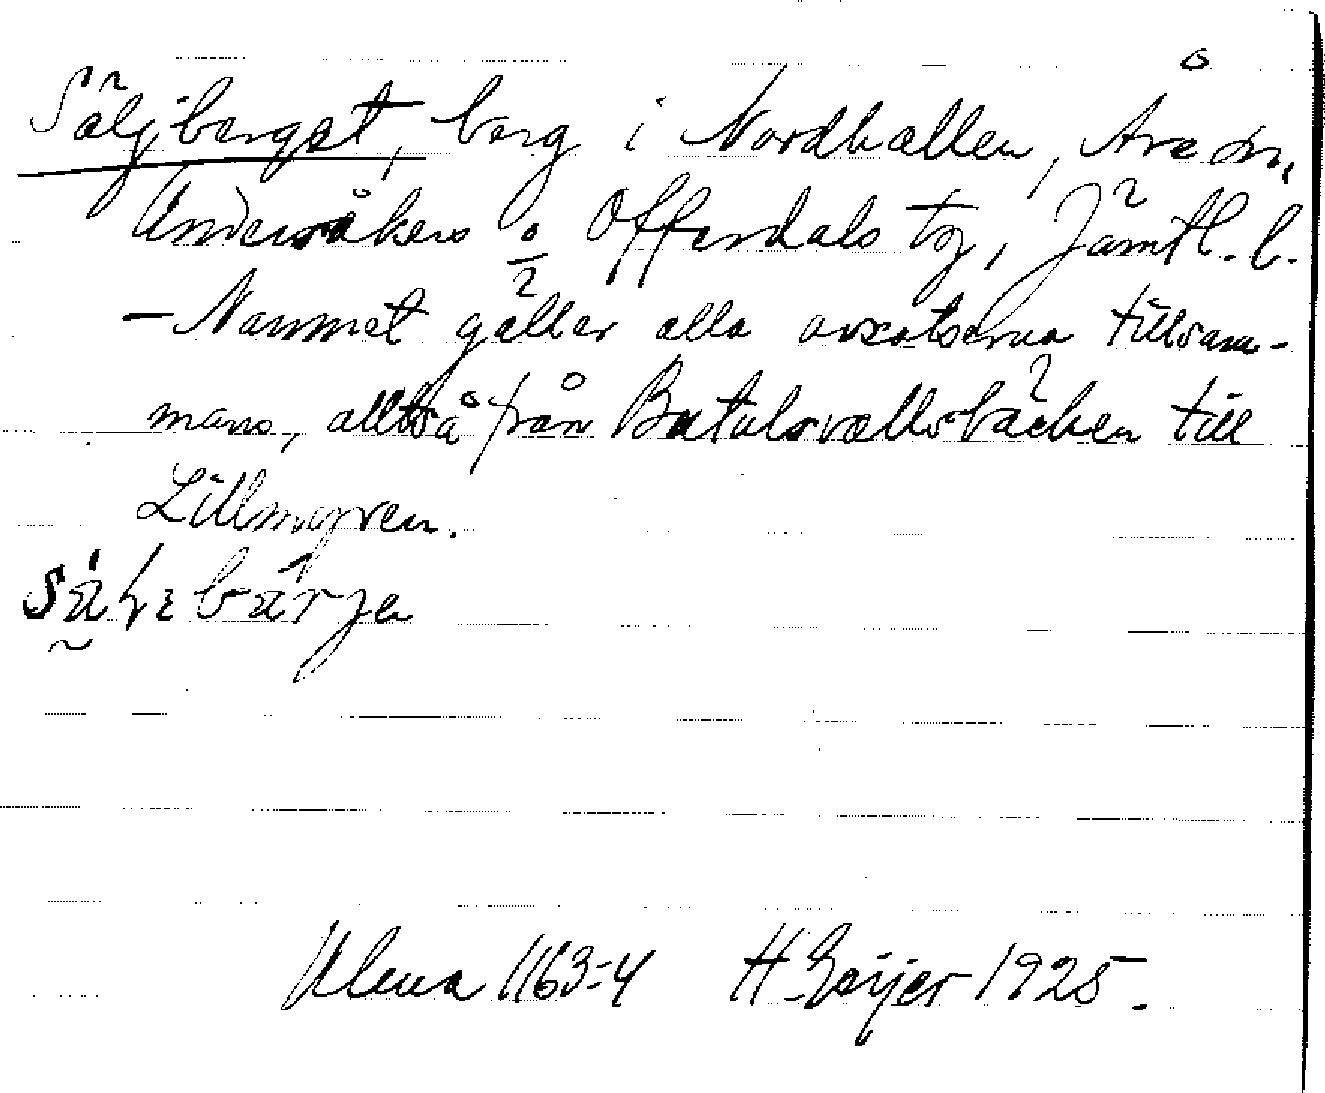 Säljberget, berg i Nordhallen, Åre sn,
Undersåkers o Offerdals tg, Jämtl. l.
– Namnet gäller alla avsatserna tillsam-
mans, alltså från Butulsvallsbäcken till
Lillmyren.
bärja
Ulma 1163:4 H. Geijer 1925.